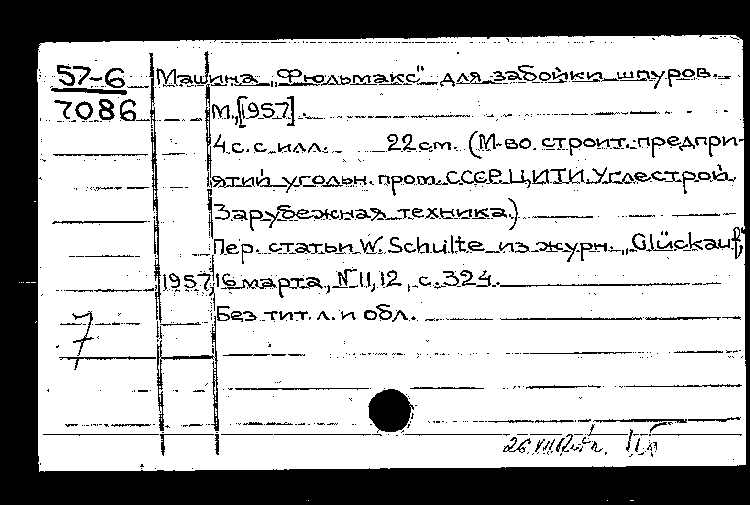 57-6 Машина „Фюльмакс" для забойки шпуров.
7086 М., [1957].
4 с. с илл. 22 см. (М-во строит. предпри-
ятий угольн. пром. СССР. ЦИТИ. Углестрой.
Зарубежная техника.)
Пер. статьи W. Schulte из журн. „Glückauf",
1957, 16 марта, № 11, 12, с. 324.
Без тит. л. и обл.
7